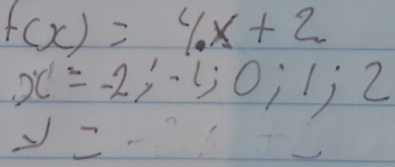 f(x) = 4.x + 2
x = -2; -1; 0; 1; 2
y =